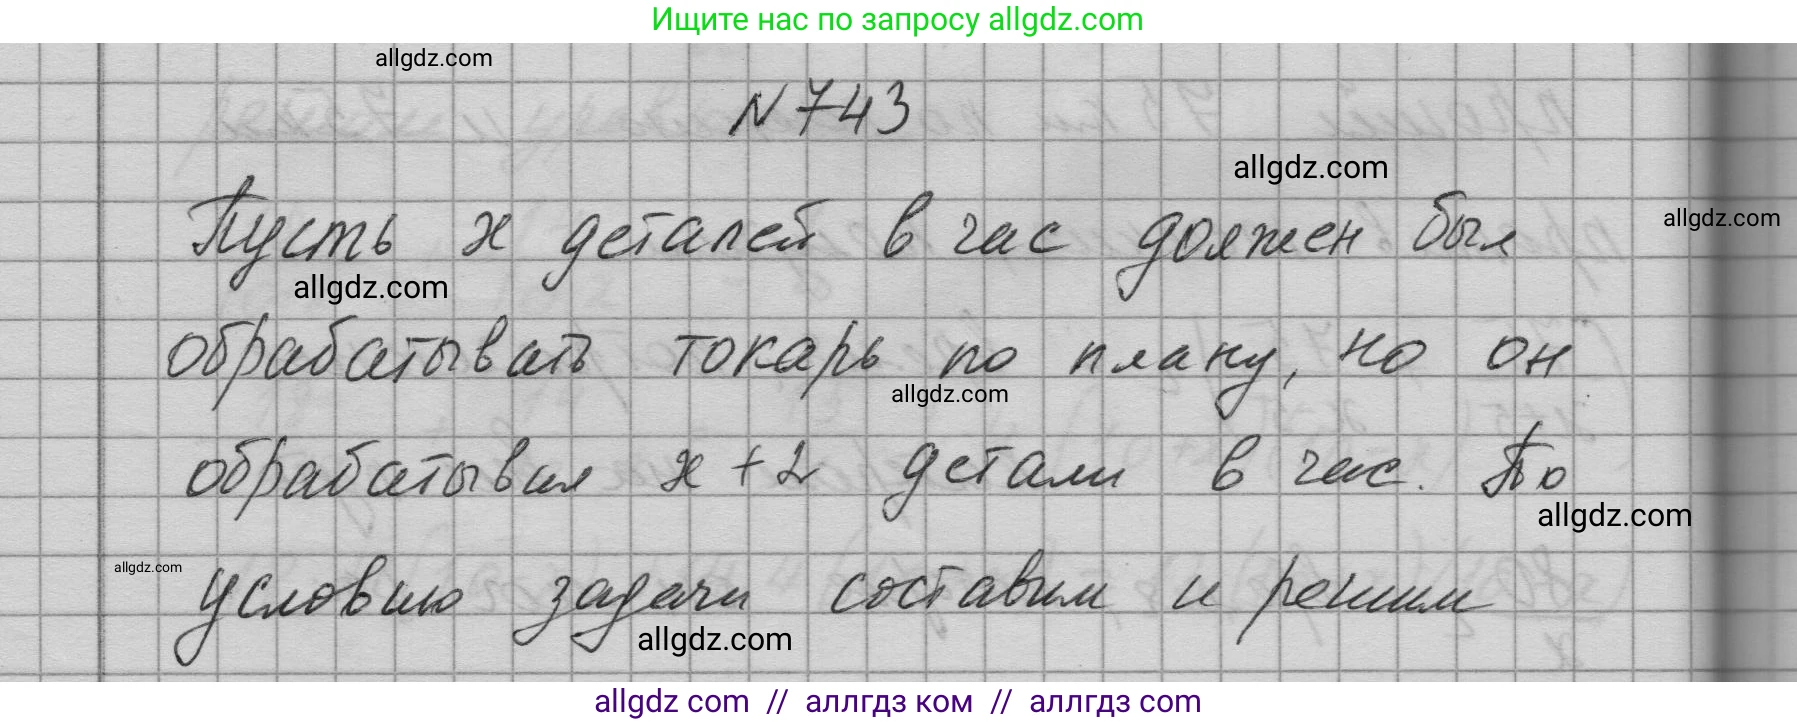 Ищите нас по запросу allgdz.com
allgdz.com
N 743
allgdz.com
Пусть x деталей в час должен был
allgdz.com
allgdz.com
обрабатывать токарь по плану, но он
allgdz.com
обрабатывал x + 2 детали в час. По
allgdz.com
allgdz.com
условию задачи составим и решим
allgdz.com
allgdz com // аллгдз ком // аллгдз com